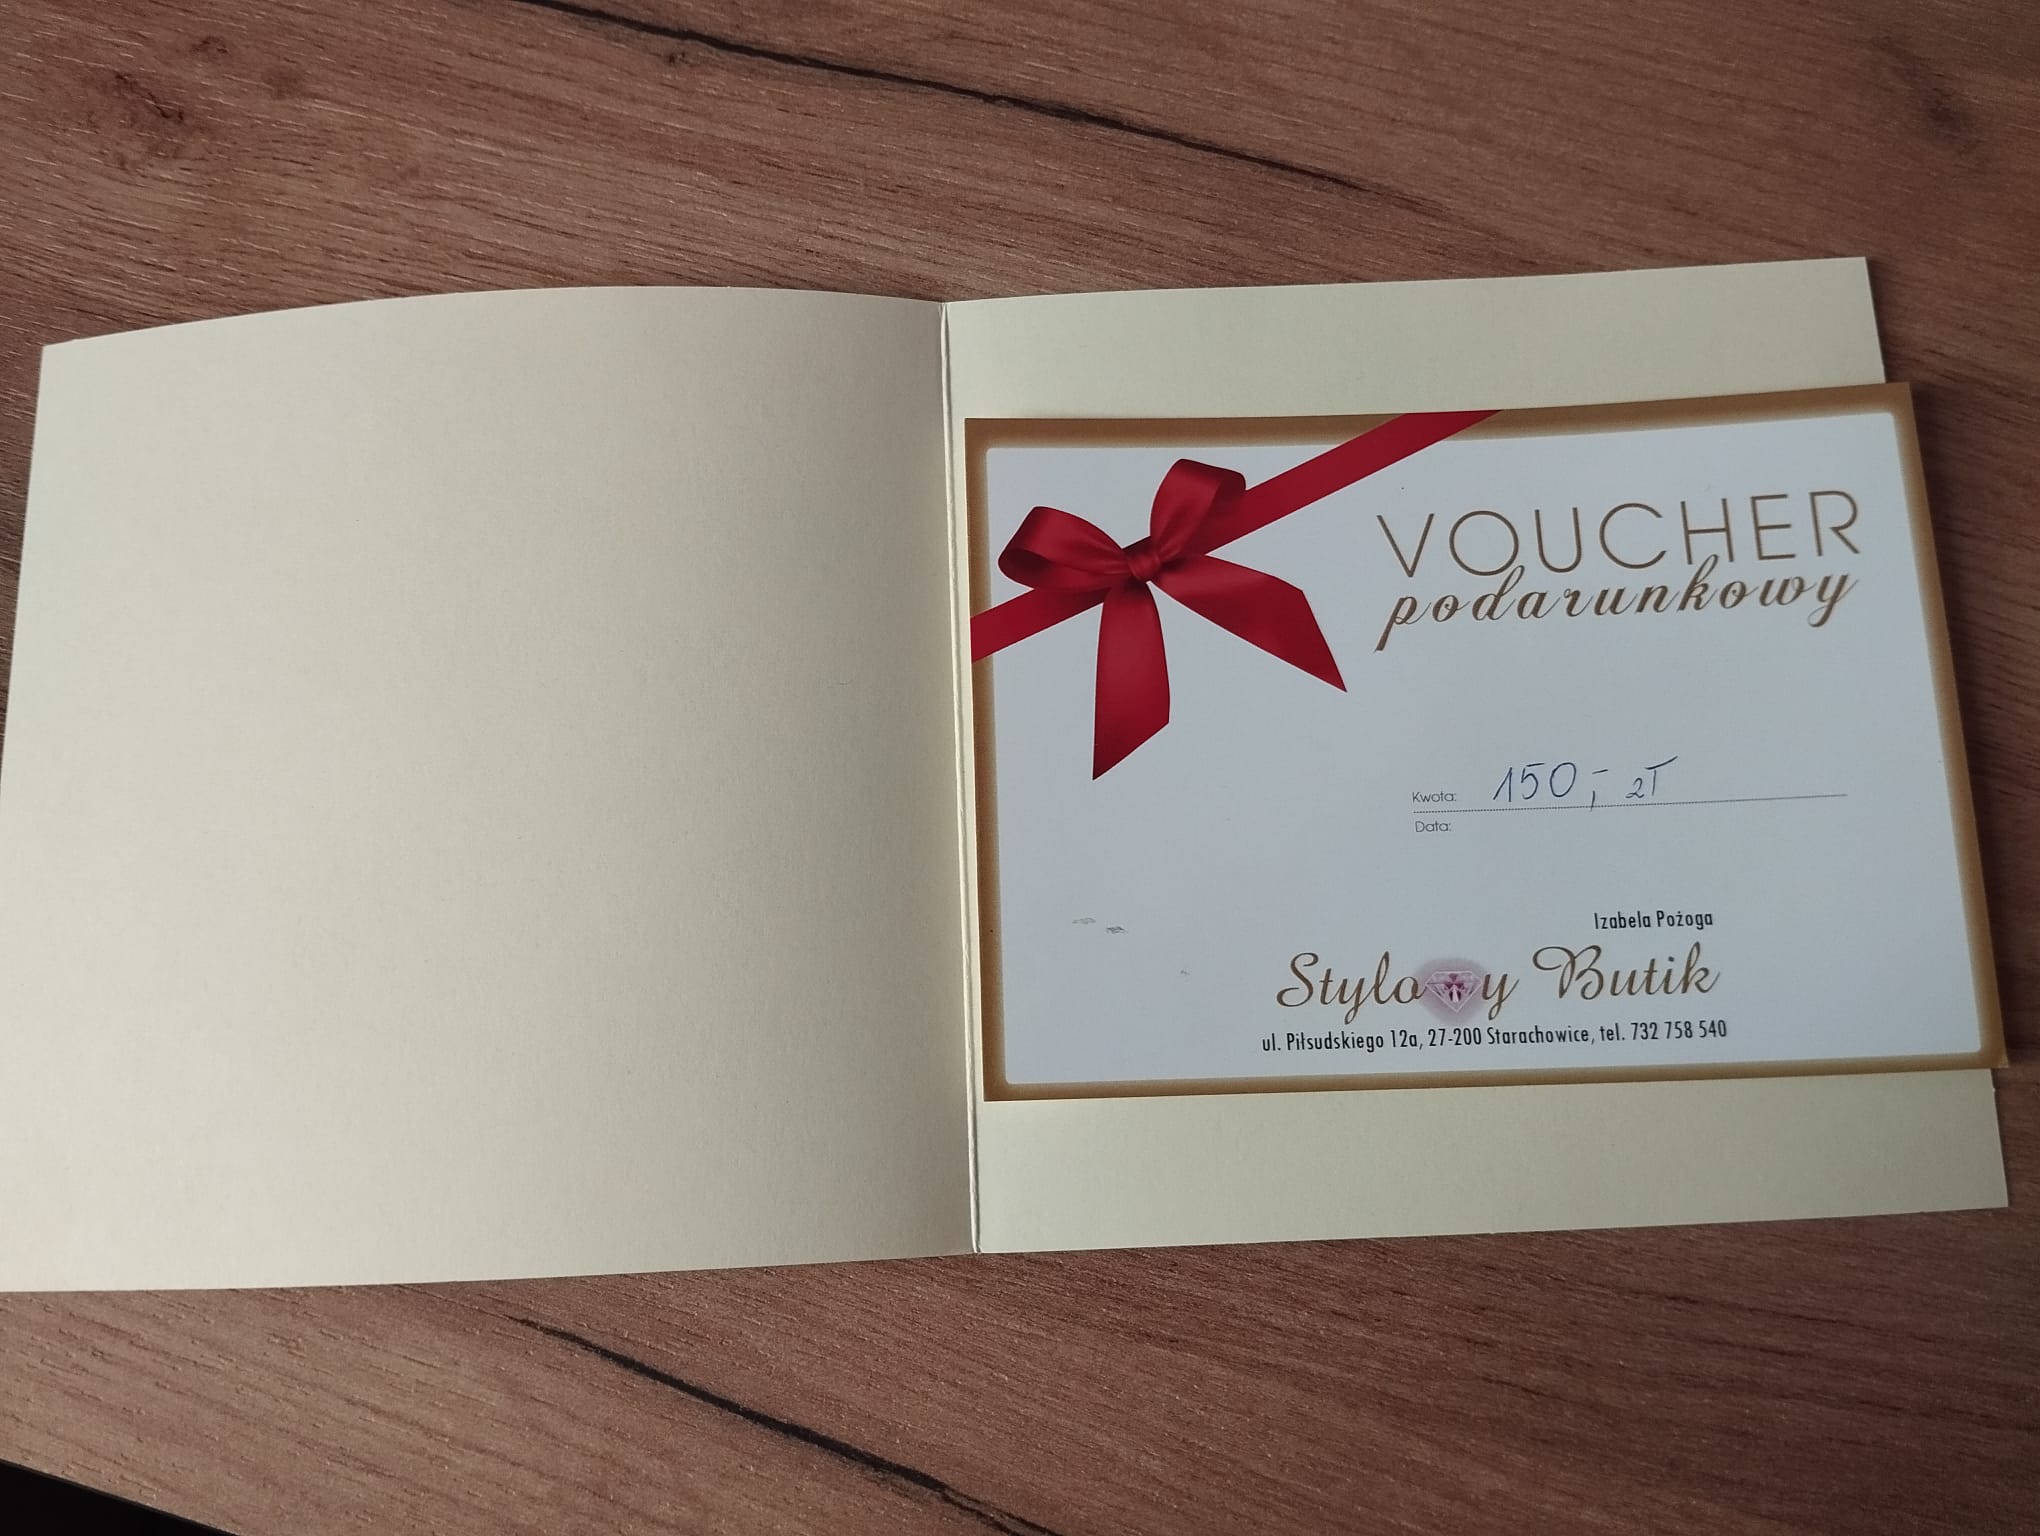 VOUCHER
podarunkowy
Kwota: 150,- zł
Data:
Izabela Pożoga
Stylowy Butik
ul. Piłsudskiego 12a, 27-200 Starachowice, tel. 732 758 540